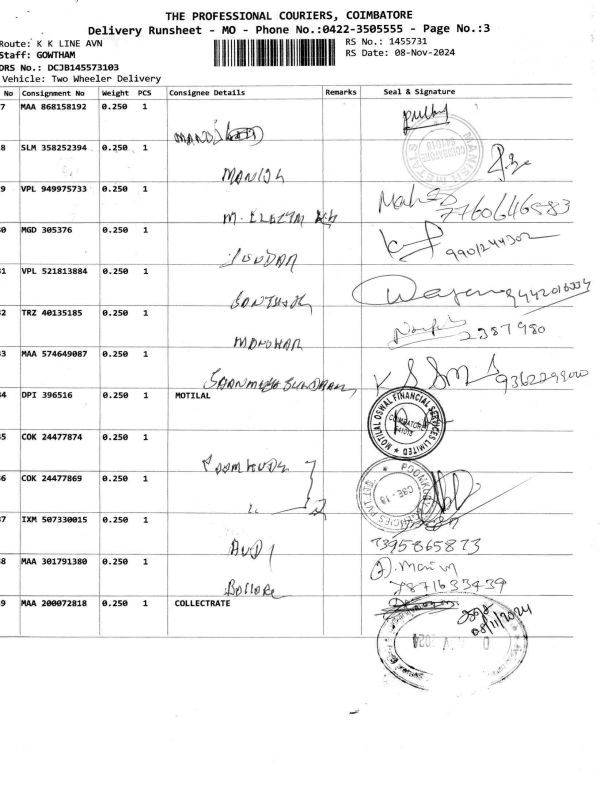 THE PROFESSIONAL COURIERS, COIMBATORE
Delivery Runsheet - MO - Phone No.:0422-3505555 - Page No.:3
Route: K K LINE AVN
RS No.: 1455731
Staff: GOWTHAM
RS Date: 08-Nov-2024
DRS No.: DCJB145573103
Vehicle: Two Wheeler Delivery
No Consignment No Weight PCS Consignee Details Remarks Seal & Signature
7 MAA 868158192 0.250 1
MANOJ
8 SLM 358252394 0.250 1
MANISH METALS
COIMBATORE
641018
MANISH
9 VPL 949975733 0.250 1
7760646583
0 MGD 305376 0.250 1
9901244302
1 VPL 521813884 0.250 1
SANTHOSH
2 TRZ 40135185 0.250 1
2387980
MANOHAR
3 MAA 574649087 0.250 1
KSSM
4 DPI 396516 0.250 1 MOTILAL
MOTILAL OSWAL FINANCIAL SERVICES LIMITED
COIMBATORE
641018
5 COK 24477874 0.250 1
6 COK 24477869 0.250 1
CBE - 18
7 IXM 507330015 0.250 1
7395865873
AUDI
8 MAA 301791380 0.250 1
7871633439
9 MAA 200072818 0.250 1 COLLECTRATE
08/11/2024